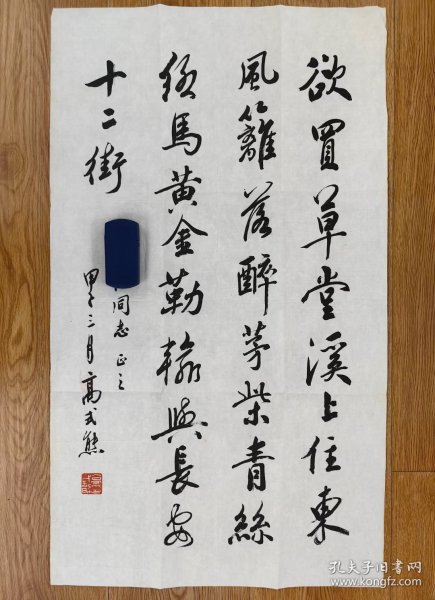 欲買草堂溪上住東
風籬落醉茅柴青絲
絡馬黄金勒輸與長安
十二街
同志正之
甲子三月高式熊
孔夫子旧书网
www.kongfz.com